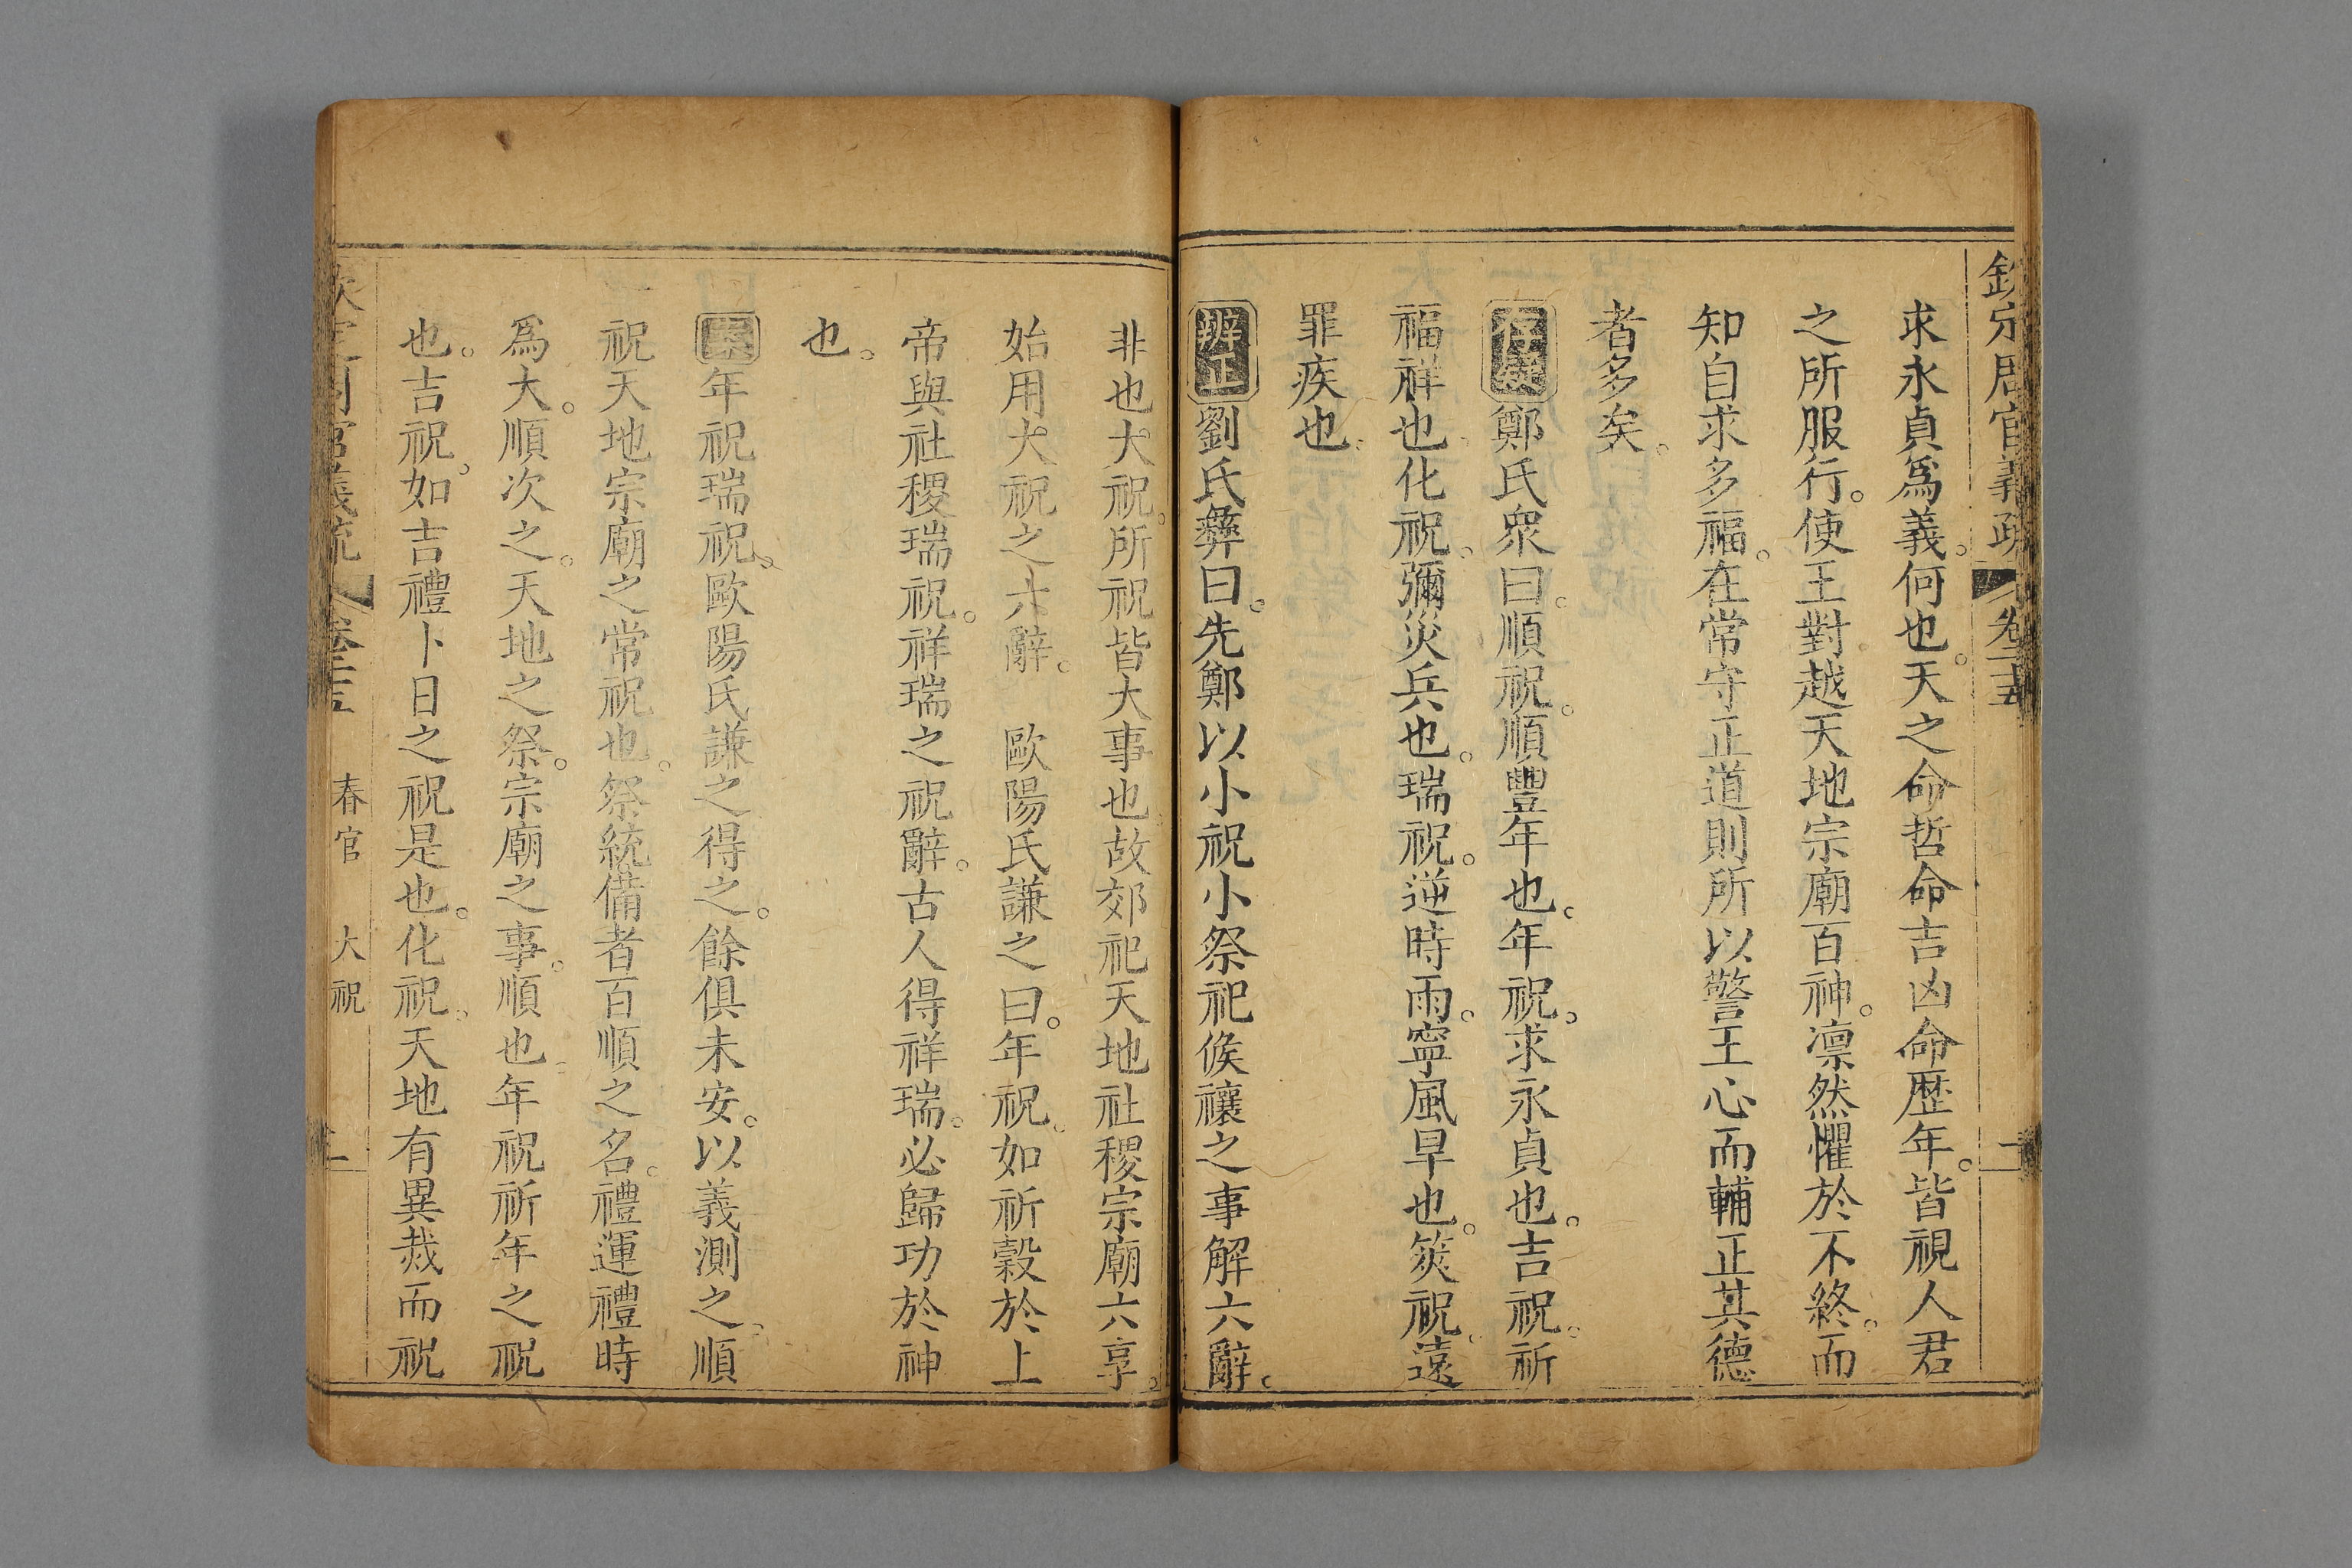 欽定周官義疏 卷二十五 二
求永貞爲義。何也。天之命哲命吉凶命歷年。皆視人君
之所服行。使王對越天地宗廟百神。凛然懼於不終。而
知自求多福。在常守正道則所以警王心而輔正其德
者多矣。
存疑鄭氏衆曰。順祝。順豐年也。年祝。求永貞也。吉祝。祈
福祥也。化祝。彌災兵也。瑞祝。逆時雨。寧風旱也。筴祝。遠
罪疾也。
辨正劉氏彝曰。先鄭以小祝小祭祀候禳之事解六辭。
非也大祝。所祝皆大事也故郊祀天地社稷宗廟六享。
始用大祝之六辭。 歐陽氏謙之曰。年祝。如祈穀於上
帝與社稷瑞祝。祥瑞之祝辭。古人得祥瑞。必歸功於神
也。
案年祝瑞祝。歐陽氏謙之得之。餘俱未安。以義測之。順
祝天地宗廟之常祝也。祭統備者百順之名。禮運禮時
爲大。順次之。天地之祭。宗廟之事。順也。年祝祈年之祝
也。吉祝。如吉禮卜日之祝是也。化祝。天地有異烖而祝
欽定周官義疏 卷二十五 春官 大祝 二